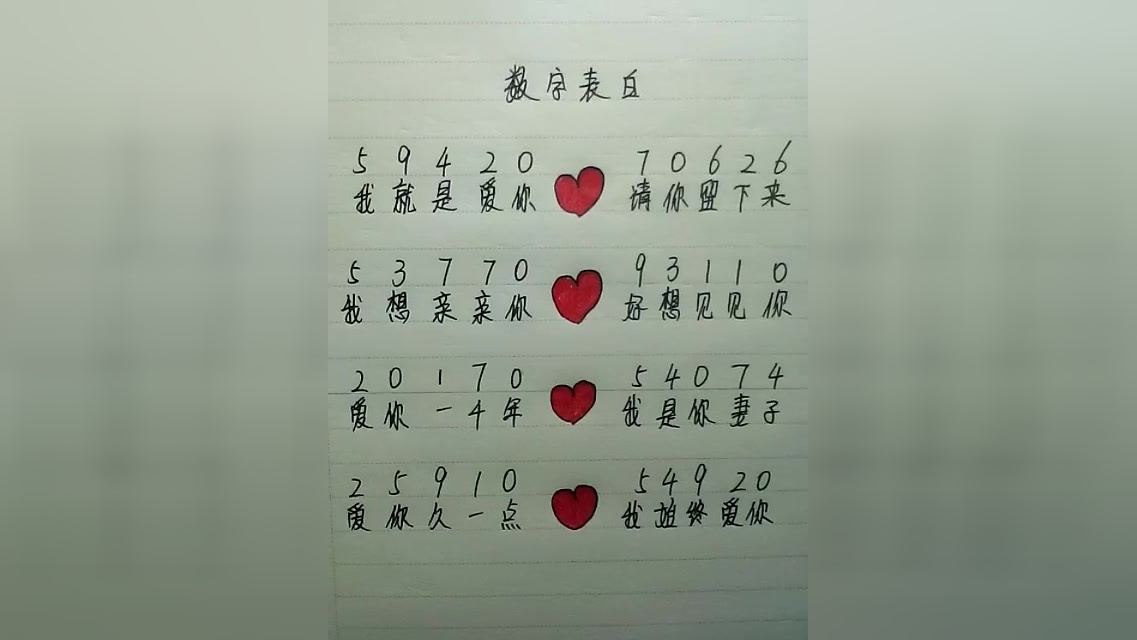 数字表白
5 9 4 2 0 7 0 6 2 6
我就是爱你 请你留下来
5 3 7 7 0 9 3 1 1 0
我想亲亲你 好想见见你
2 0 1 7 0 5 4 0 7 4
爱你一4年 我是你妻子
2 5 9 1 0 5 4 9 2 0
爱你久一点 我始终爱你